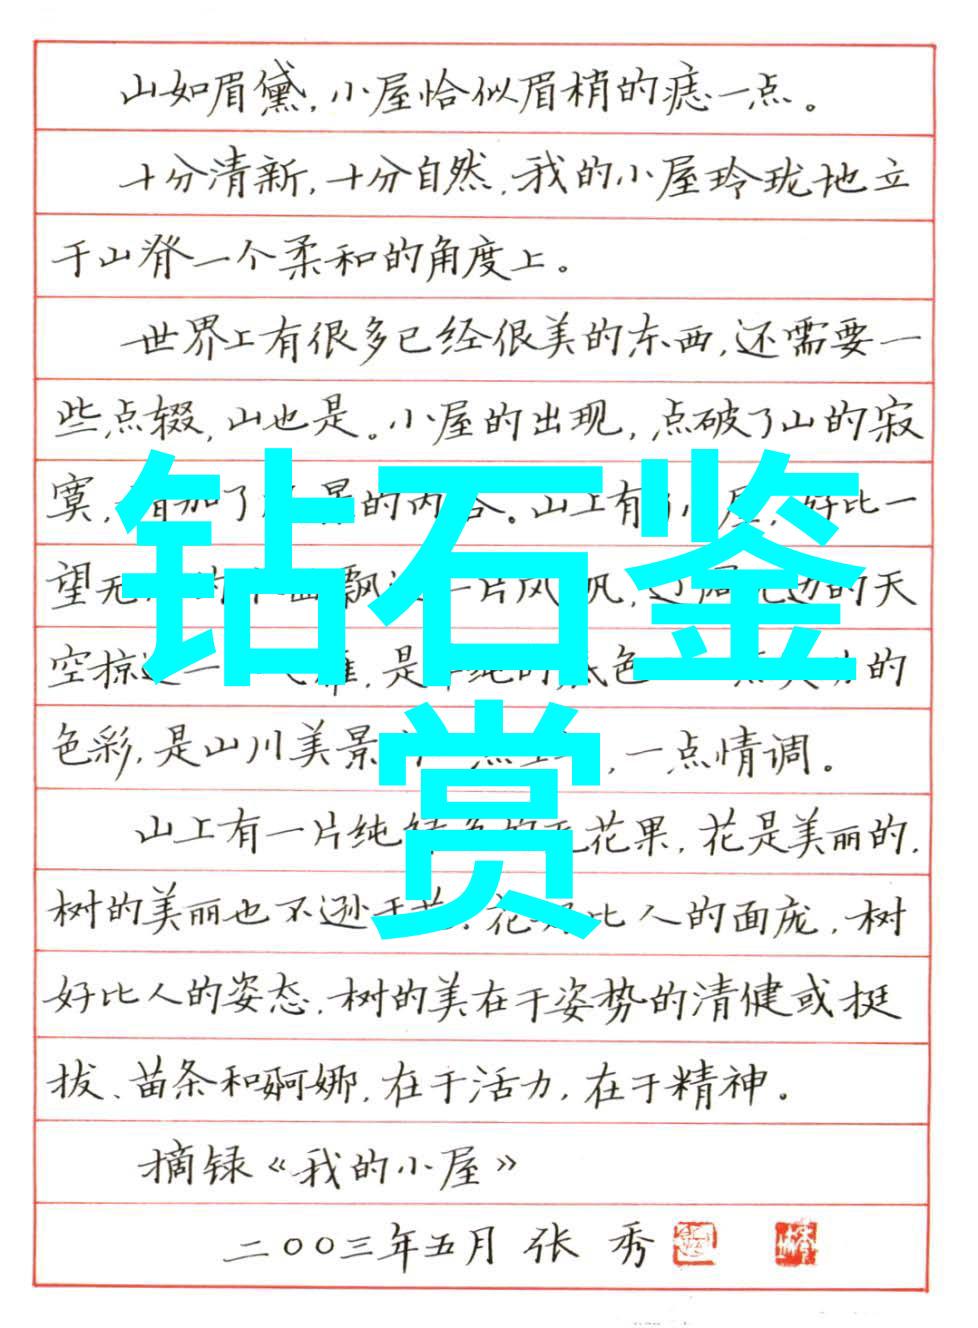 山如眉黛，小屋恰似眉梢的痣一点。
十分清新，十分自然，我的小屋玲珑地立
于山脊一个柔和的角度上。
世界上有很多已经很美的东西，还需要一
些点缀，山也是。小屋的出现，点破了山的寂
寞，增加了景的内容。山上有小屋，好比一
望无飘一片风帆，辽阔无边的天
空掠过一雁，是单纯的底色的
色彩，是山川美景，一点情调。
山上有一片纯绿色的无花果，花是美丽的，
树的美丽也不逊于花。花好比人的面庞，树
好比人的姿态。树的美在于姿势的清健或挺
拔、苗条和婀娜，在于活力，在于精神。
摘録《我的小屋》
二〇〇三年五月 张 秀
钻石鉴
赏